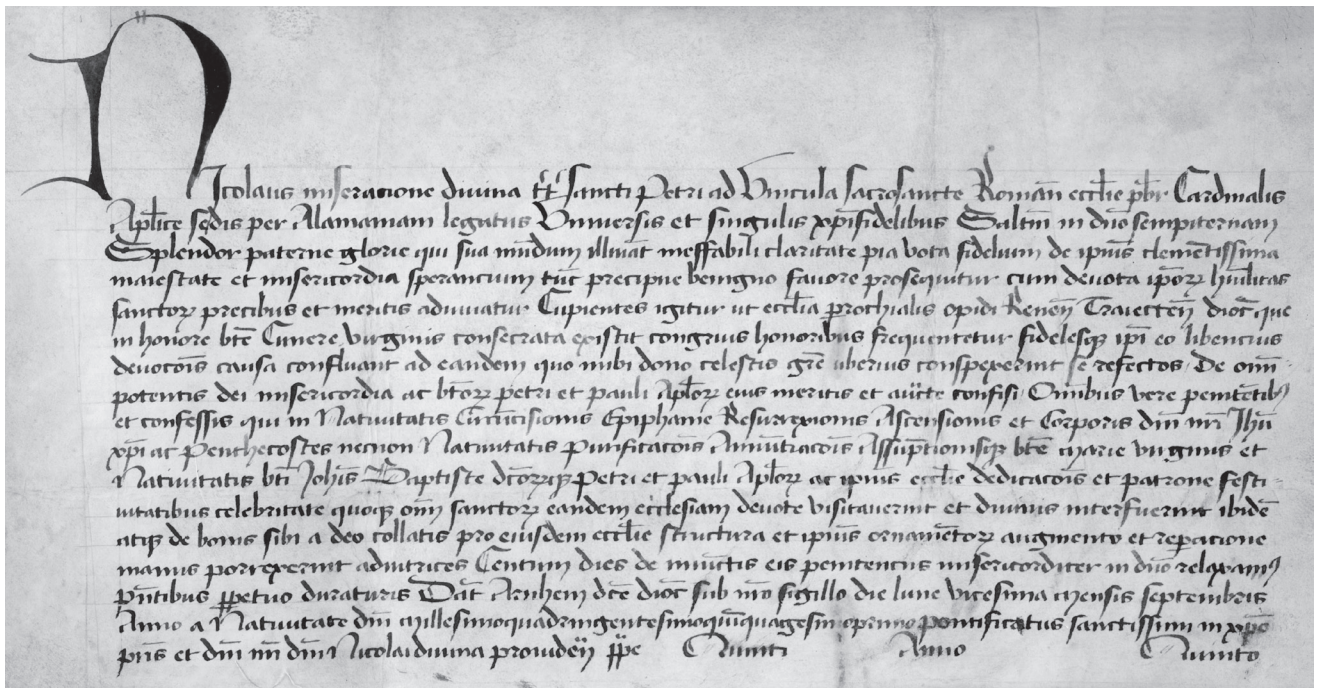 Nicolaus miseracione divina tt̃ Sancti Petri ad Vincula sacrosancte Romañ eccl̃ie pb̃r Cardinalis
Apl̃ice sedis per Alamaniam legatus Universis et singulis xp̃ifidelibus Salt̃m in dño sempiternam
Splendor paterne glorie qui sua mũdum illũiat ineffabili claritate pia vota fidelium de ip̃ius clemẽtissima
maiestate et misericordia sperancium tũc precipue benigno favore prosequitur cum devota ip̃oꝝ hũilitas
sanctoꝝ precibus et meritis adiuvatur Cupientes igitur ut eccl̃ia ꝑrochialis opidi Reneñ Traiecteñ dioc̃ que
in honore bt̃e Cunere virginis consecrata existit congruis honoribus frequentetur fidelesqꝫ ip̃i eo libencius
devoc̃ois causa confluant ad eandem quo inibi dono celestis gr̃e uberius conspexerint se refectos De om̃i
potentis dei misericordia ac bt̃oꝝ petri et pauli Apl̃oꝝ eius meritis et auc̃te confisi Om̃ibus vere penitẽtibꝫ
et confessis qui in Nativitatis Circũcisionis Epiphanie Resurrexionis Ascensionis et Corporis dñi nr̃i Jhũ
xp̃i ac Penthecostes necnon Nativitatis Purificac̃ois Annũtiac̃ois Assũptionisqꝫ bt̃e Marie virginis et
Nativitatis bt̃i Joh̃is Baptiste dc̃oꝝqꝫ Petri et pauli Apl̃oꝝ ac ip̃ius eccl̃ie dedicac̃ois et patrone festi
vitatibus celebritate quoqꝫ om̃i sanctoꝝ eandem ecclesiam devote visitaverint et divinis interfuerint ibidẽ
atqꝫ de bonis sibi a deo collatis pro eiusdem eccl̃ie structura et ip̃ius ornamẽtoꝝ augmento et reꝑacione
manus porrexerint adiutrices Centum dies de iniũctis eis penitenciis misericorditer in dño relaxamꝰ
pñtibus ꝑpetuo duraturis Dat̃ Arnhem dc̃e dioc̃ sub nr̃o sigillo die lune vicesima mensis septembris
Anno a Nativitate dñi Millesimoquadringentesimoqũiquagesimoprimo pontificatus sanctissimi in xp̃o
pr̃is et dñi nr̃i dñi Nicolai divina provideñ pp̃e Quinti Anno Quinto